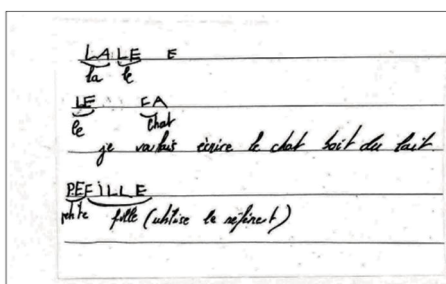 LA LE E
la le
LE CA
le chat
je voulais écrire le chat boit du lait
PEFILLE
petite fille (utilise le référent)